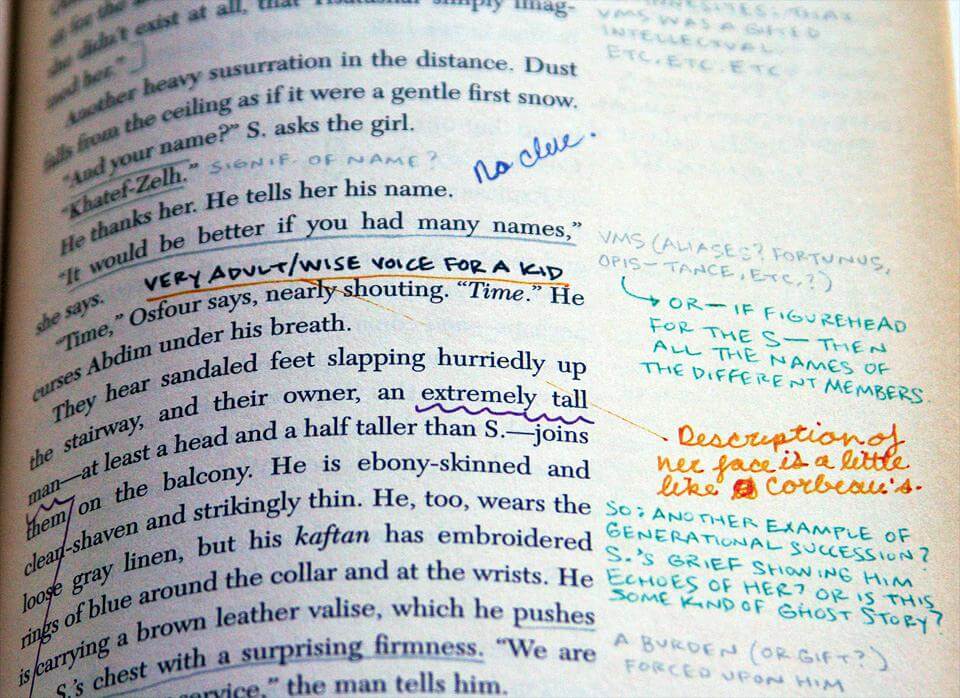 she didn't exist at all, that simply imag-
ined her."
Another heavy susurration in the distance. Dust
falls from the ceiling as if it were a gentle first snow.
"And your name?" S. asks the girl.
"Khatef-Zelh." SIGNIF. OF NAME?
No clue.
He thanks her. He tells her his name.
"It would be better if you had many names,"
she says.
VERY ADULT/WISE VOICE FOR A KID
"Time," Osfour says, nearly shouting. "Time." He
curses Abdim under his breath.
They hear sandaled feet slapping hurriedly up
the stairway, and their owner, an extremely tall
man—at least a head and a half taller than S.—joins
them on the balcony. He is ebony-skinned and
clean-shaven and strikingly thin. He, too, wears the
loose gray linen, but his kaftan has embroidered
rings of blue around the collar and at the wrists. He
is carrying a brown leather valise, which he pushes
S.'s chest with a surprising firmness. "We are
the man tells him.
VMS WAS A GIFTED
INTELLECTUAL.
ETC. ETC. ETC.
VMS (ALIASES? FORTUNUS,
OPIS-TANCE, ETC.?)
OR—IF FIGUREHEAD
FOR THE S—THEN
ALL THE NAMES OF
THE DIFFERENT MEMBERS.
Description of
her face is a little
like Corbeau's.
SO: ANOTHER EXAMPLE OF
GENERATIONAL SUCCESSION?
S.'S GRIEF SHOWING HIM
ECHOES OF HER? OR IS THIS
SOME KIND OF GHOST STORY?
A BURDEN (OR GIFT?)
FORCED UPON HIM